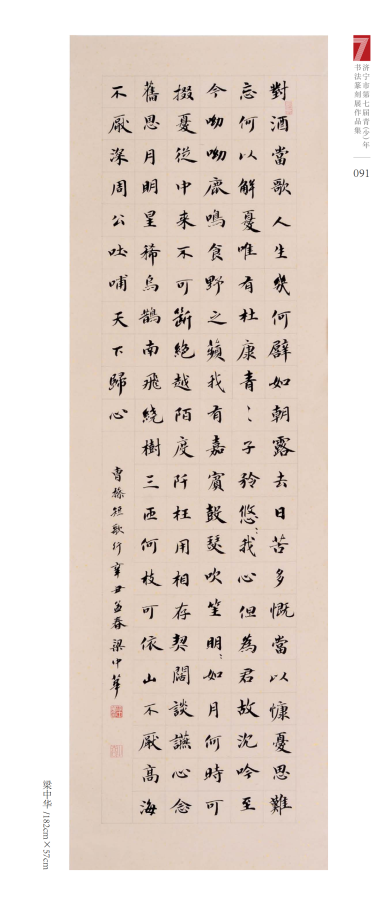 7
济宁市第七届青(少)年
书法篆刻展作品集
091
對酒當歌人生幾何譬如朝露去日苦多慨當以慷憂思難
忘何以解憂唯有杜康青〻子衿悠〻我心但為君故沉吟至
今呦呦鹿鳴食野之蘋我有嘉賓鼓瑟吹笙明〻如月何時可
掇憂從中来不可斷絕越陌度阡枉用相存契闊談讌心念
舊恩月明星稀烏鵲南飛繞樹三匝何枝可依山不厭高海
不厭深周公吐哺天下歸心
曹操短歌行辛丑孟春梁中華
梁中华 /182cm×57cm